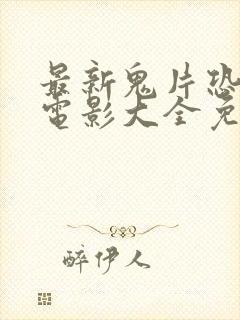 最新鬼片恐
電影大全免
醉伊人